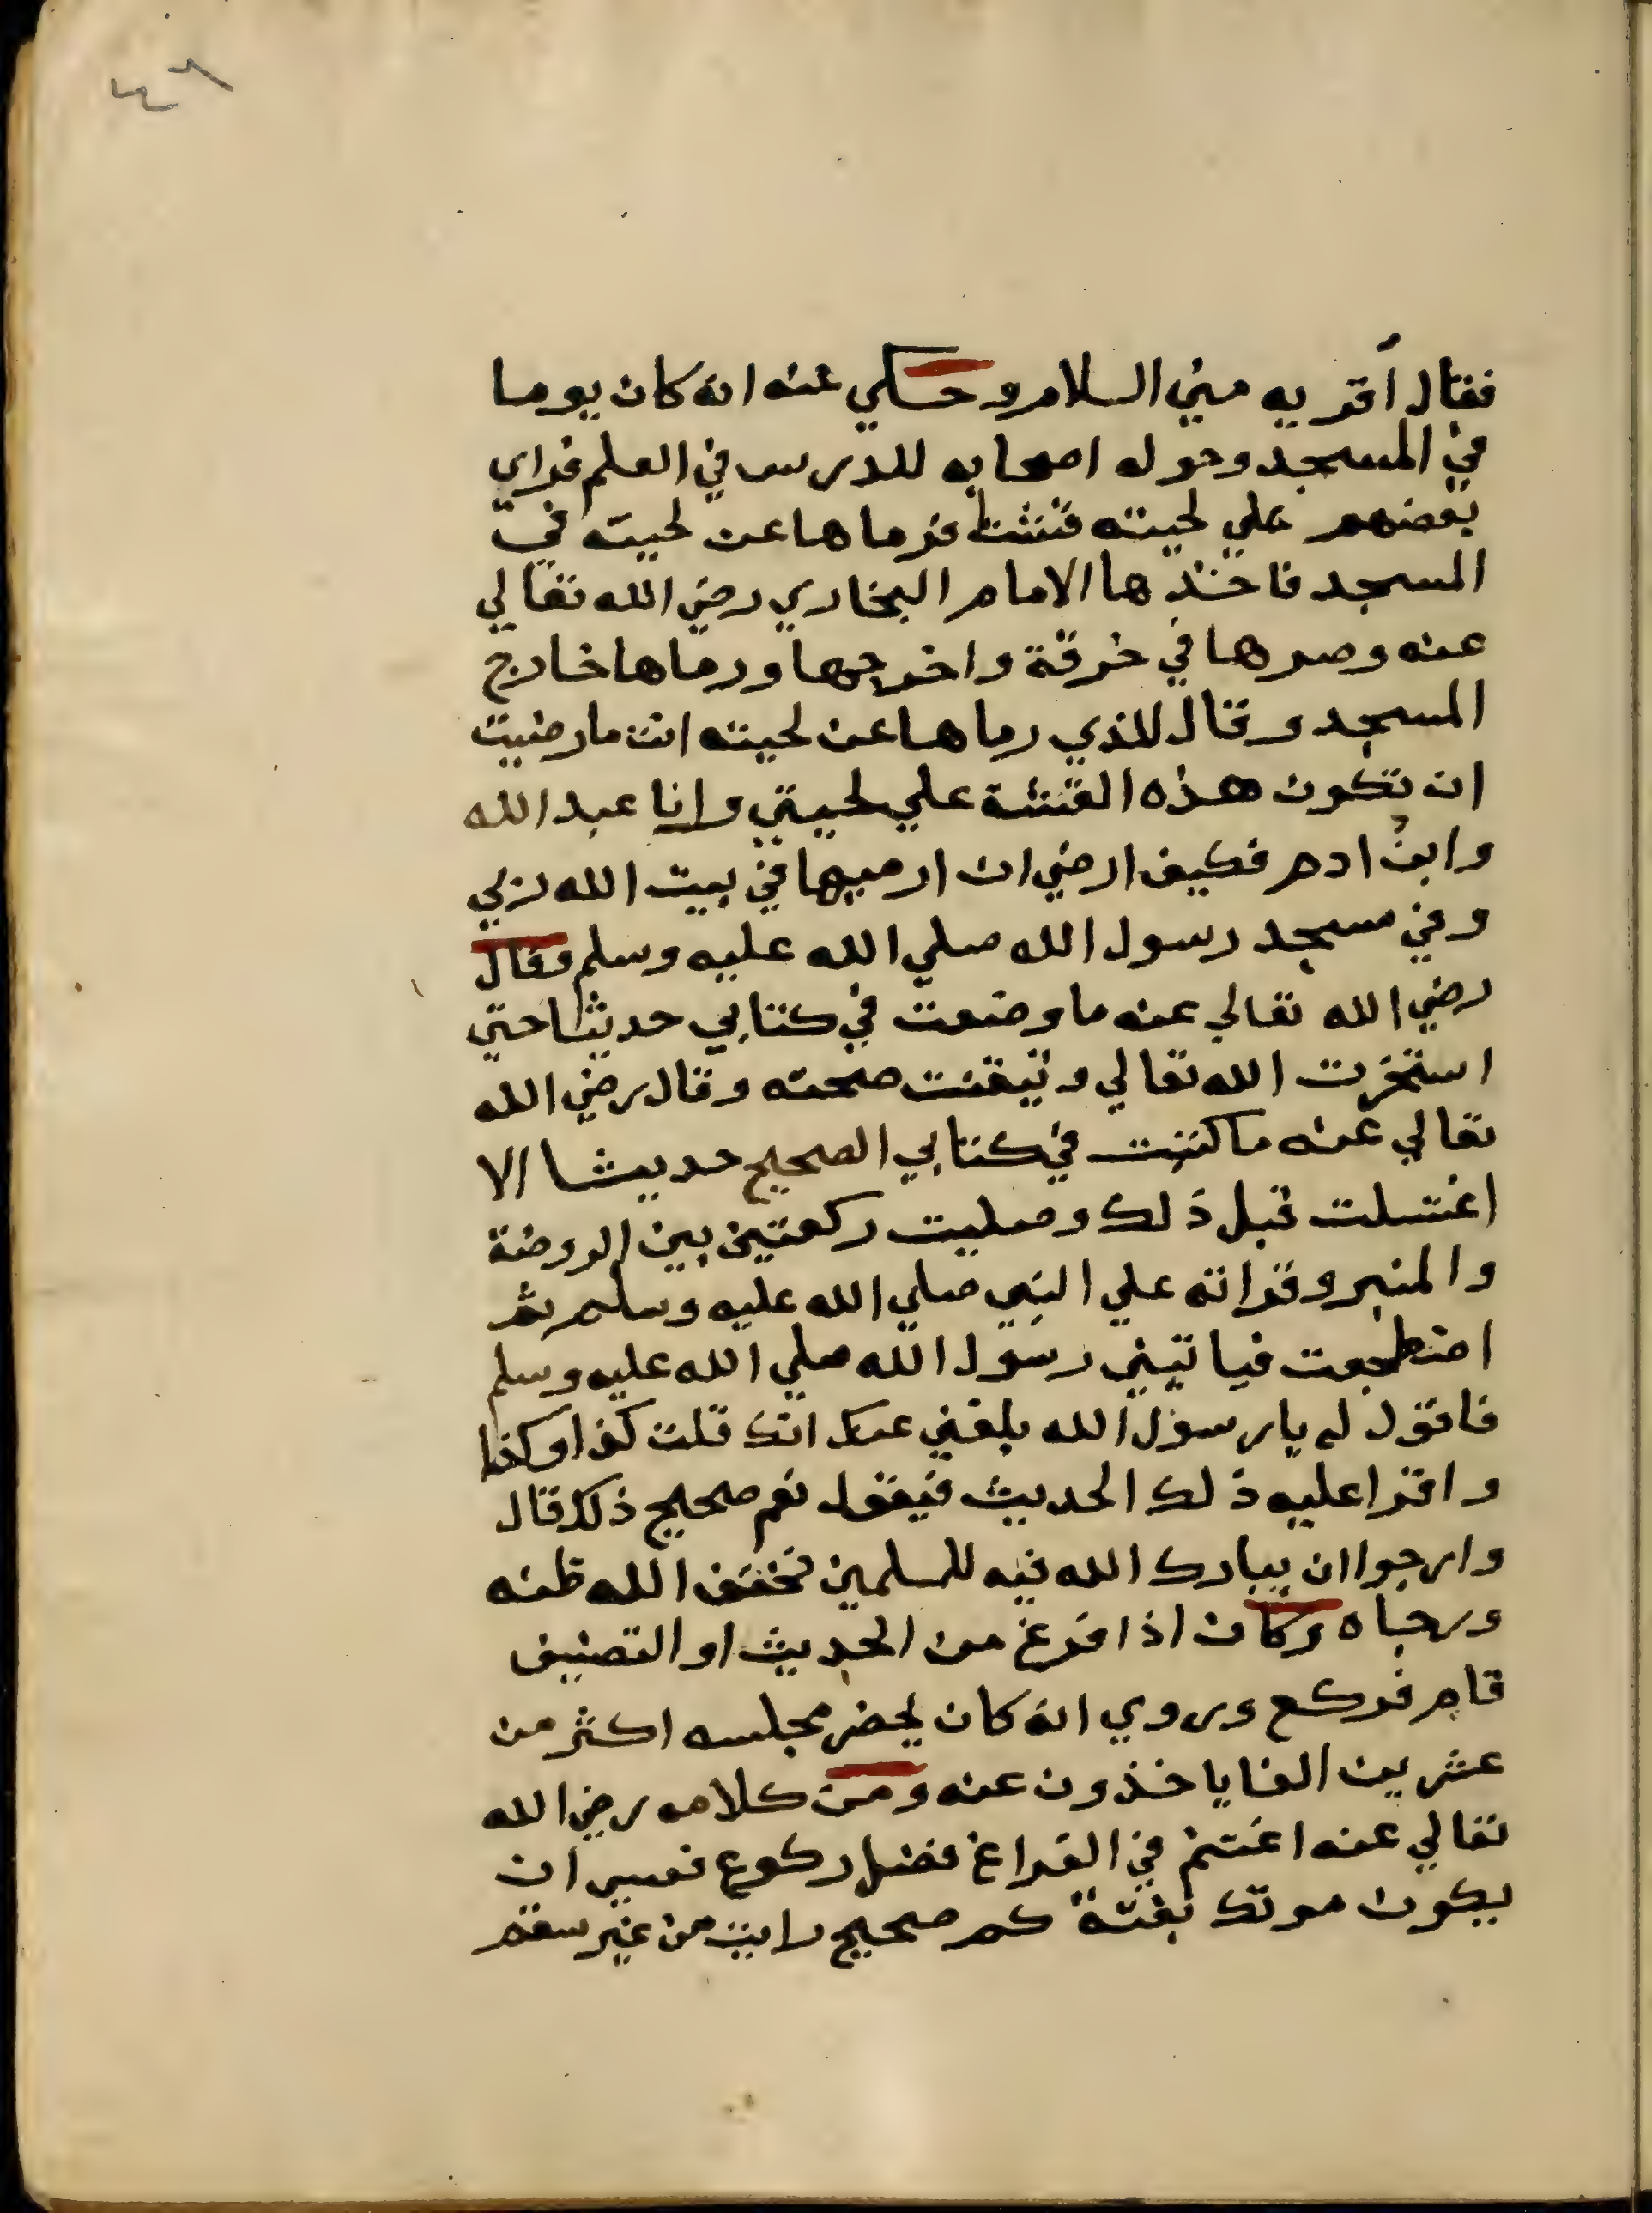 فقال اقريه مني السلام وحكي عنه انه كان يوما
في المسجد وحوله اصحابه للدرس في العلم فراي
بعضهم علي لحيته قشة فرماها عن لحيته في
المسجد فاخذها الامام البخاري رضي الله تعالي
عنه وصرها في خرقة واخرجها ورماها خارج
المسجد وقال للذي رماها عن لحيته انت مارضيت
ان تكون هذه القشة علي لحيتي وانا عبد الله
وابن ادم فكيف ارضي ان ارميها في بيت الله ربي
وفي مسجد رسول الله صلي الله عليه وسلم وقال
رضي الله تعالي عنه ما وضعت في كتابي حديثا حتي
استخرت الله تعالي وتيقنت صحته وقال رضي الله
تعالي عنه ما كتبت في كتابي الصحيح حديثا الا
اغتسلت قبل ذلك وصليت ركعتين بين الروضة
والمنبر وقراته علي النبي صلي الله عليه وسلم ثم
اضطجعت فياتيني رسول الله صلي الله عليه وسلم
فاقول له يا رسول الله بلغني عنك انك قلت كذا وكذا
واقرا عليه ذلك الحديث فيقول نعم صحيح ذلك قال
وارجوا ان يبارك الله فيه للمسلمين فحقق الله ظنه
ورجاه وكان اذا فرغ من الحديث او التصنيف
قام فركع وروي انه كان يحضر مجلسه اكثر من
عشرين الفا ياخذون عنه ومن كلامه رضي الله
تعالي عنه اغتنم في الفراغ فضل ركوع فعسي ان
يكون موتك بغتة كم صحيح رايت من غير سقم